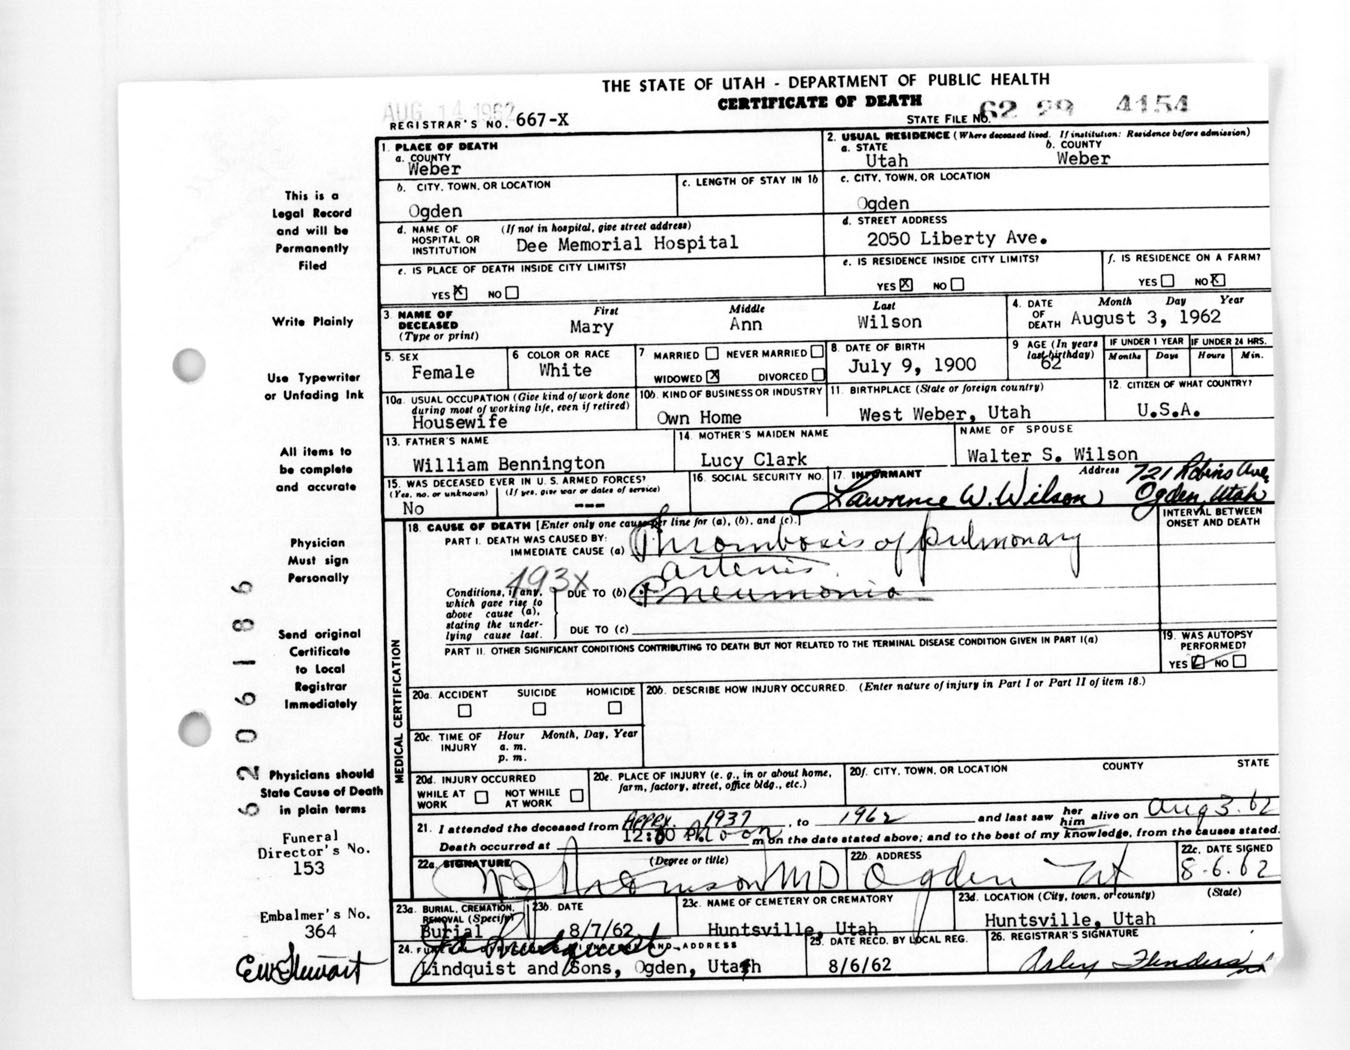 THE STATE OF UTAH - DEPARTMENT OF PUBLIC HEALTH
CERTIFICATE OF DEATH
AUG 14 1962
REGISTRAR'S NO. 667-X
STATE FILE NO. 62 29 4154
This is a
Legal Record
and will be
Permanently
Filed
Write Plainly
Use Typewriter
or Unfading Ink
All items to
be complete
and accurate
Physician
Must sign
Personally
Send original
Certificate
to Local
Registrar
Immediately
Physicians should
State Cause of Death
in plain terms
Funeral
Director's No.
153
Embalmer's No.
364
EW Stewart
52061186
1. PLACE OF DEATH
a. COUNTY
Weber
b. CITY, TOWN, OR LOCATION
Ogden
c. LENGTH OF STAY IN 1b
d. NAME OF HOSPITAL OR INSTITUTION (If not in hospital, give street address)
Dee Memorial Hospital
e. IS PLACE OF DEATH INSIDE CITY LIMITS?
YES X NO
2. USUAL RESIDENCE (Where deceased lived. If institution: Residence before admission)
a. STATE
Utah
b. COUNTY
Weber
c. CITY, TOWN, OR LOCATION
Ogden
d. STREET ADDRESS
2050 Liberty Ave.
e. IS RESIDENCE INSIDE CITY LIMITS?
YES X NO
f. IS RESIDENCE ON A FARM?
YES NO X
3 NAME OF DECEASED (Type or print)
First Middle Last
Mary Ann Wilson
4. DATE OF DEATH Month Day Year
August 3, 1962
5. SEX
Female
6 COLOR OR RACE
White
7 MARRIED NEVER MARRIED
WIDOWED X DIVORCED
8. DATE OF BIRTH
July 9, 1900
9 AGE (In years last birthday)
62
IF UNDER 1 YEAR IF UNDER 24 HRS.
Months Days Hours Min.
10a. USUAL OCCUPATION (Give kind of work done during most of working life, even if retired)
Housewife
10b. KIND OF BUSINESS OR INDUSTRY
Own Home
11. BIRTHPLACE (State or foreign country)
West Weber, Utah
12. CITIZEN OF WHAT COUNTRY?
U.S.A.
13. FATHER'S NAME
William Bennington
14. MOTHER'S MAIDEN NAME
Lucy Clark
NAME OF SPOUSE
Walter S. Wilson
15. WAS DECEASED EVER IN U. S. ARMED FORCES?
(Yes, no, or unknown) (If yes, give war or dates of service)
No ---
16. SOCIAL SECURITY NO.
17. INFORMANT Address
Lawrence W. Wilson 721 Robins Ave.
Ogden, Utah
18. CAUSE OF DEATH [Enter only one cause per line for (a), (b), and (c).]
INTERVAL BETWEEN
ONSET AND DEATH
PART I. DEATH WAS CAUSED BY:
IMMEDIATE CAUSE (a) Thrombosis of pulmonary
arteries
493X
Conditions, if any, which gave rise to above cause (a), stating the underlying cause last.
DUE TO (b) Pneumonia
DUE TO (c)
PART II. OTHER SIGNIFICANT CONDITIONS CONTRIBUTING TO DEATH BUT NOT RELATED TO THE TERMINAL DISEASE CONDITION GIVEN IN PART I(a)
19. WAS AUTOPSY PERFORMED?
YES NO
MEDICAL CERTIFICATION
20a. ACCIDENT SUICIDE HOMICIDE
20b. DESCRIBE HOW INJURY OCCURRED. (Enter nature of injury in Part I or Part II of item 18.)
20c. TIME OF INJURY Hour Month, Day, Year
a. m.
p. m.
20d. INJURY OCCURRED
WHILE AT WORK NOT WHILE AT WORK
20e. PLACE OF INJURY (e. g., in or about home, farm, factory, street, office bldg., etc.)
20f. CITY, TOWN, OR LOCATION COUNTY STATE
21. I attended the deceased from Appx. 1937, to 1962 and last saw her him alive on Aug 3. 62
Death occurred at 12:00 Noon m on the date stated above; and to the best of my knowledge, from the causes stated.
22a. SIGNATURE (Degree or title)
MD
22b. ADDRESS
Ogden Ut
22c. DATE SIGNED
8-6.62
23a. BURIAL, CREMATION, REMOVAL (Specify)
Burial
23b. DATE
8/7/62
23c. NAME OF CEMETERY OR CREMATORY
Huntsville, Utah
23d. LOCATION (City, town, or county) (State)
Huntsville, Utah
24. FUNERAL DIRECTOR'S SIGNATURE AND ADDRESS
Lindquist
Lindquist and Sons, Ogden, Utah
25. DATE RECD. BY LOCAL REG.
8/6/62
26. REGISTRAR'S SIGNATURE